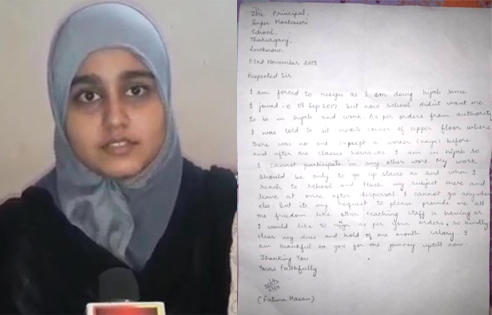 The Principal,
Super Montessori
School,
Thakurganj,
Lucknow
03rd November 2017
Respected Sir
I am forced to resign as I am doing hijab since
I joined i.e 08 Sep 2017 but now school didn't want me
to be in hijab and work. As per orders from authority
I was told to sit corner of upper floor where
there was no one a women before
and after the classes I am in hijab so
I cannot participate in any other work. My work
should be only to go up stairs as and when I
reach to school and teach my subject there and
leave at once after dispersal. I cannot go anywhere
else but its my request to please provide me all
the freedom like other teaching staff is having or
I would like to resign as per your orders, so kindly
clear my dues and hold of one month salary. I
am thankful to you for the journey uptill now.
Thanking You
Yours Faithfully
(Fatima Hasan)